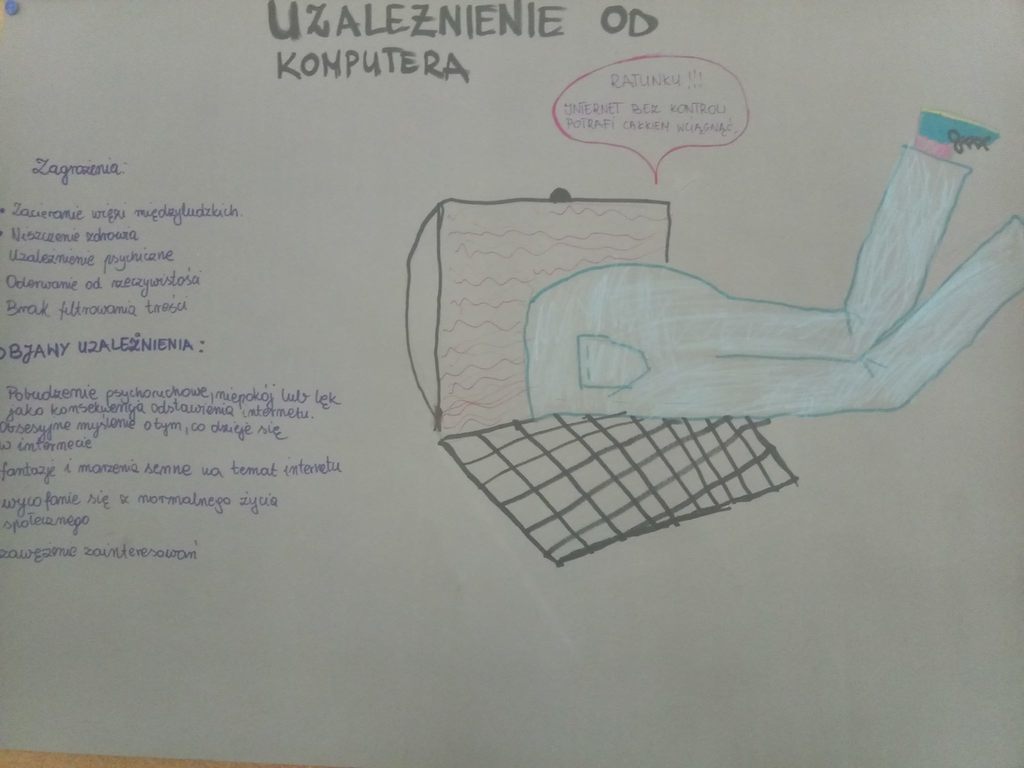 UZALEŻNIENIE OD
KOMPUTERA
RATUNKU !!!
INTERNET BEZ KONTROLI
POTRAFI CAŁKIEM WCIĄGNĄĆ.
Zagrożenia:
• Zacieranie więzi międzyludzkich.
• Niszczenie zdrowia
Uzależnienie psychiczne
Oderwanie od rzeczywistości
Brak filtrowania treści
OBJAWY UZALEŻNIENIA:
Pobudzenie psychoruchowe, niepokój lub lęk
jako konsekwencja odstawienia internetu.
Obsesyjne myślenie o tym, co dzieje się
w internecie
fantazje i marzenia senne na temat internetu
wycofanie się z normalnego życia
społecznego
zawężenie zainteresowań